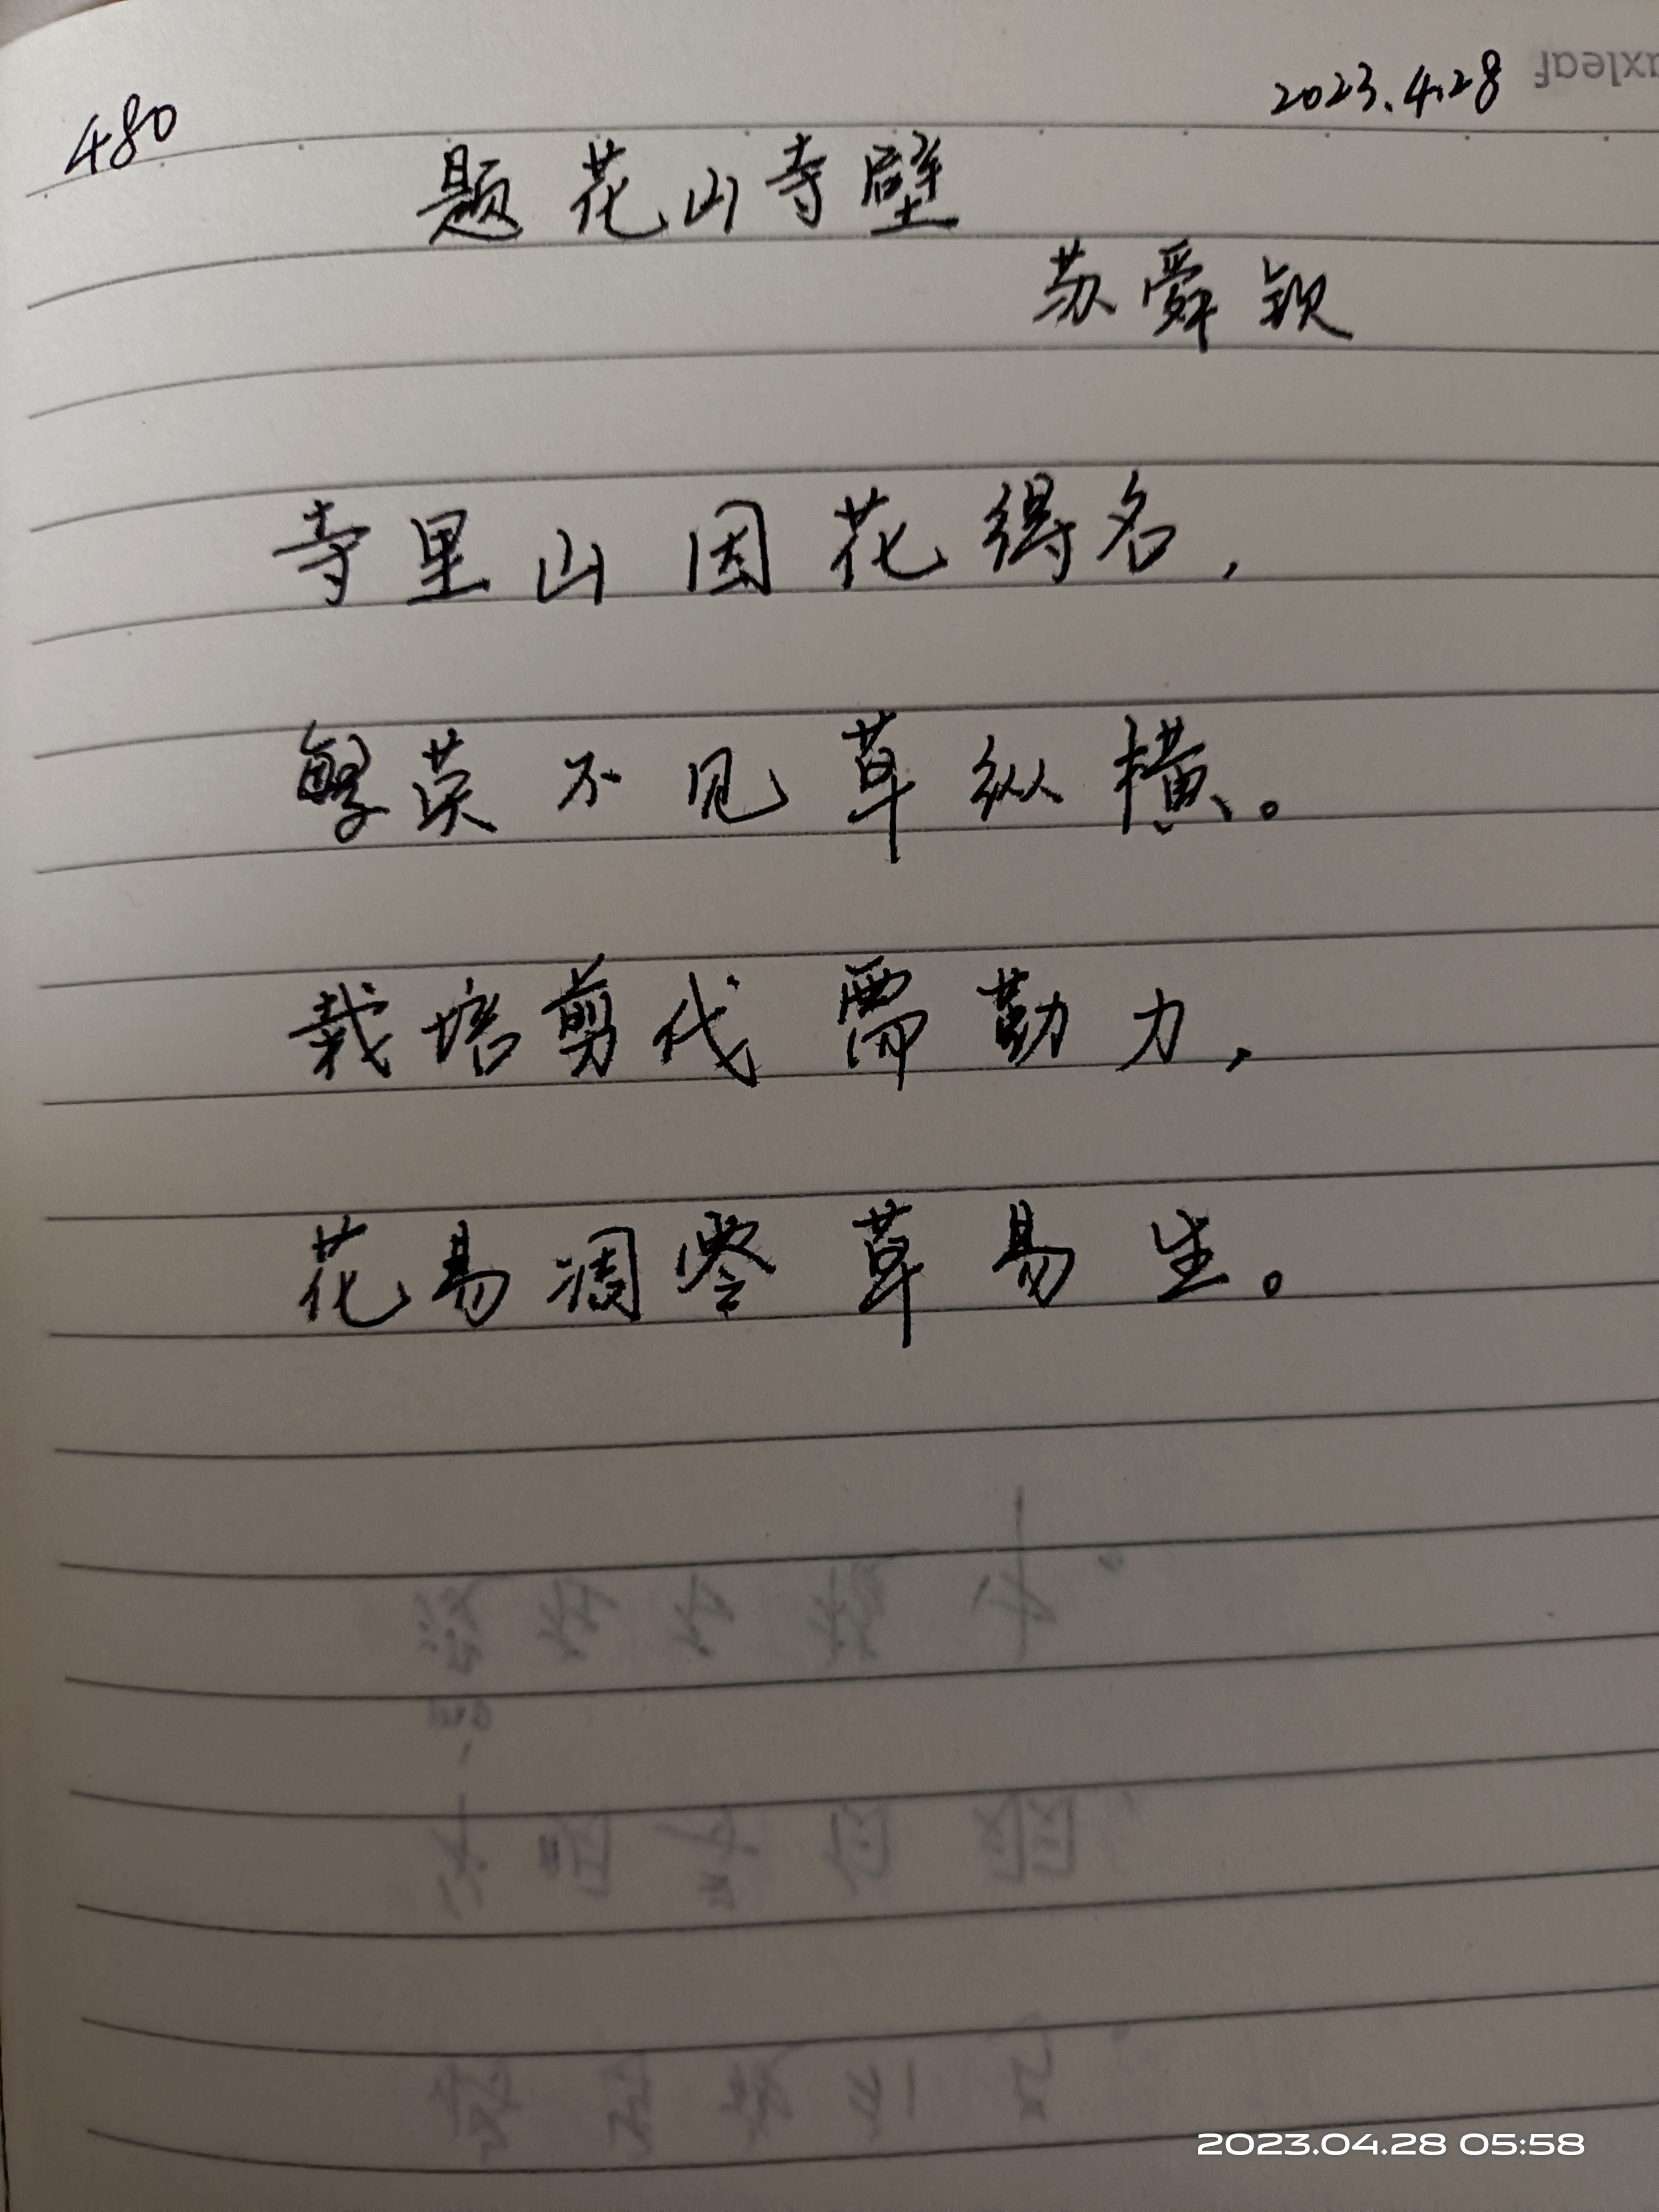 480
2023.4.28
axleaf
题花山寺壁
苏舜钦
寺里山因花得名，
繁英不见草纵横。
栽培剪伐需勤力，
花易凋零草易生。
2023.04.28 05:58